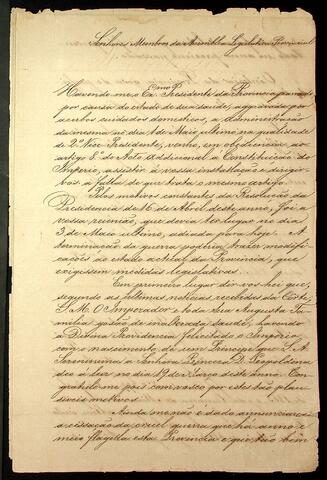 Senhores Membros da Assembléa Legislativa Provincial
Havendo-me o Exmo Presidente da Provincia passado
por causa do estado de sua saúde, aggravada por
acerbos cuidados domesticos, a Administração
da mesma no dia 1 de Maio ultimo na qualidade
de 2º Vice Presidente, venho, em obediencia ao
artigo 8º do Acto Addicional a Constituição do
Imperio, assistir á vossa installação e dirigir-
vos a falla de que trata o mesmo artigo.
Pelos motivos constantes da Resolução da
Presidencia de 16 de Abril deste anno, foi a
vossa reunião, que devia ter lugar no dia
3 de Maio ultimo, adiada para hoje. A
terminação da guerra poderia trazer modifi-
cações ao estado actual da Provincia, que
exigissem medidas legislativas.
Em primeiro lugar dir-vos-hei que,
segundo as ultimas noticias recebidas da Côrte,
S. M. O Imperador e toda Sua Augusta Fa-
milia gozão de inalterada saude, havendo
a Divina Providencia felicitado o Imperio
com o nascimento de um Principe que S. A.
Serenissima a Senhora Princeza D. Leopoldina
deo á luz no dia 19 de Março deste anno. Con-
gratulo-me pois com vosco por este tão plau-
sivel motivo.
Ainda me não é dado annunciar-vos
a cessação da cruel guerra que ha anno e
meio flagella esta Provincia e que tão bem